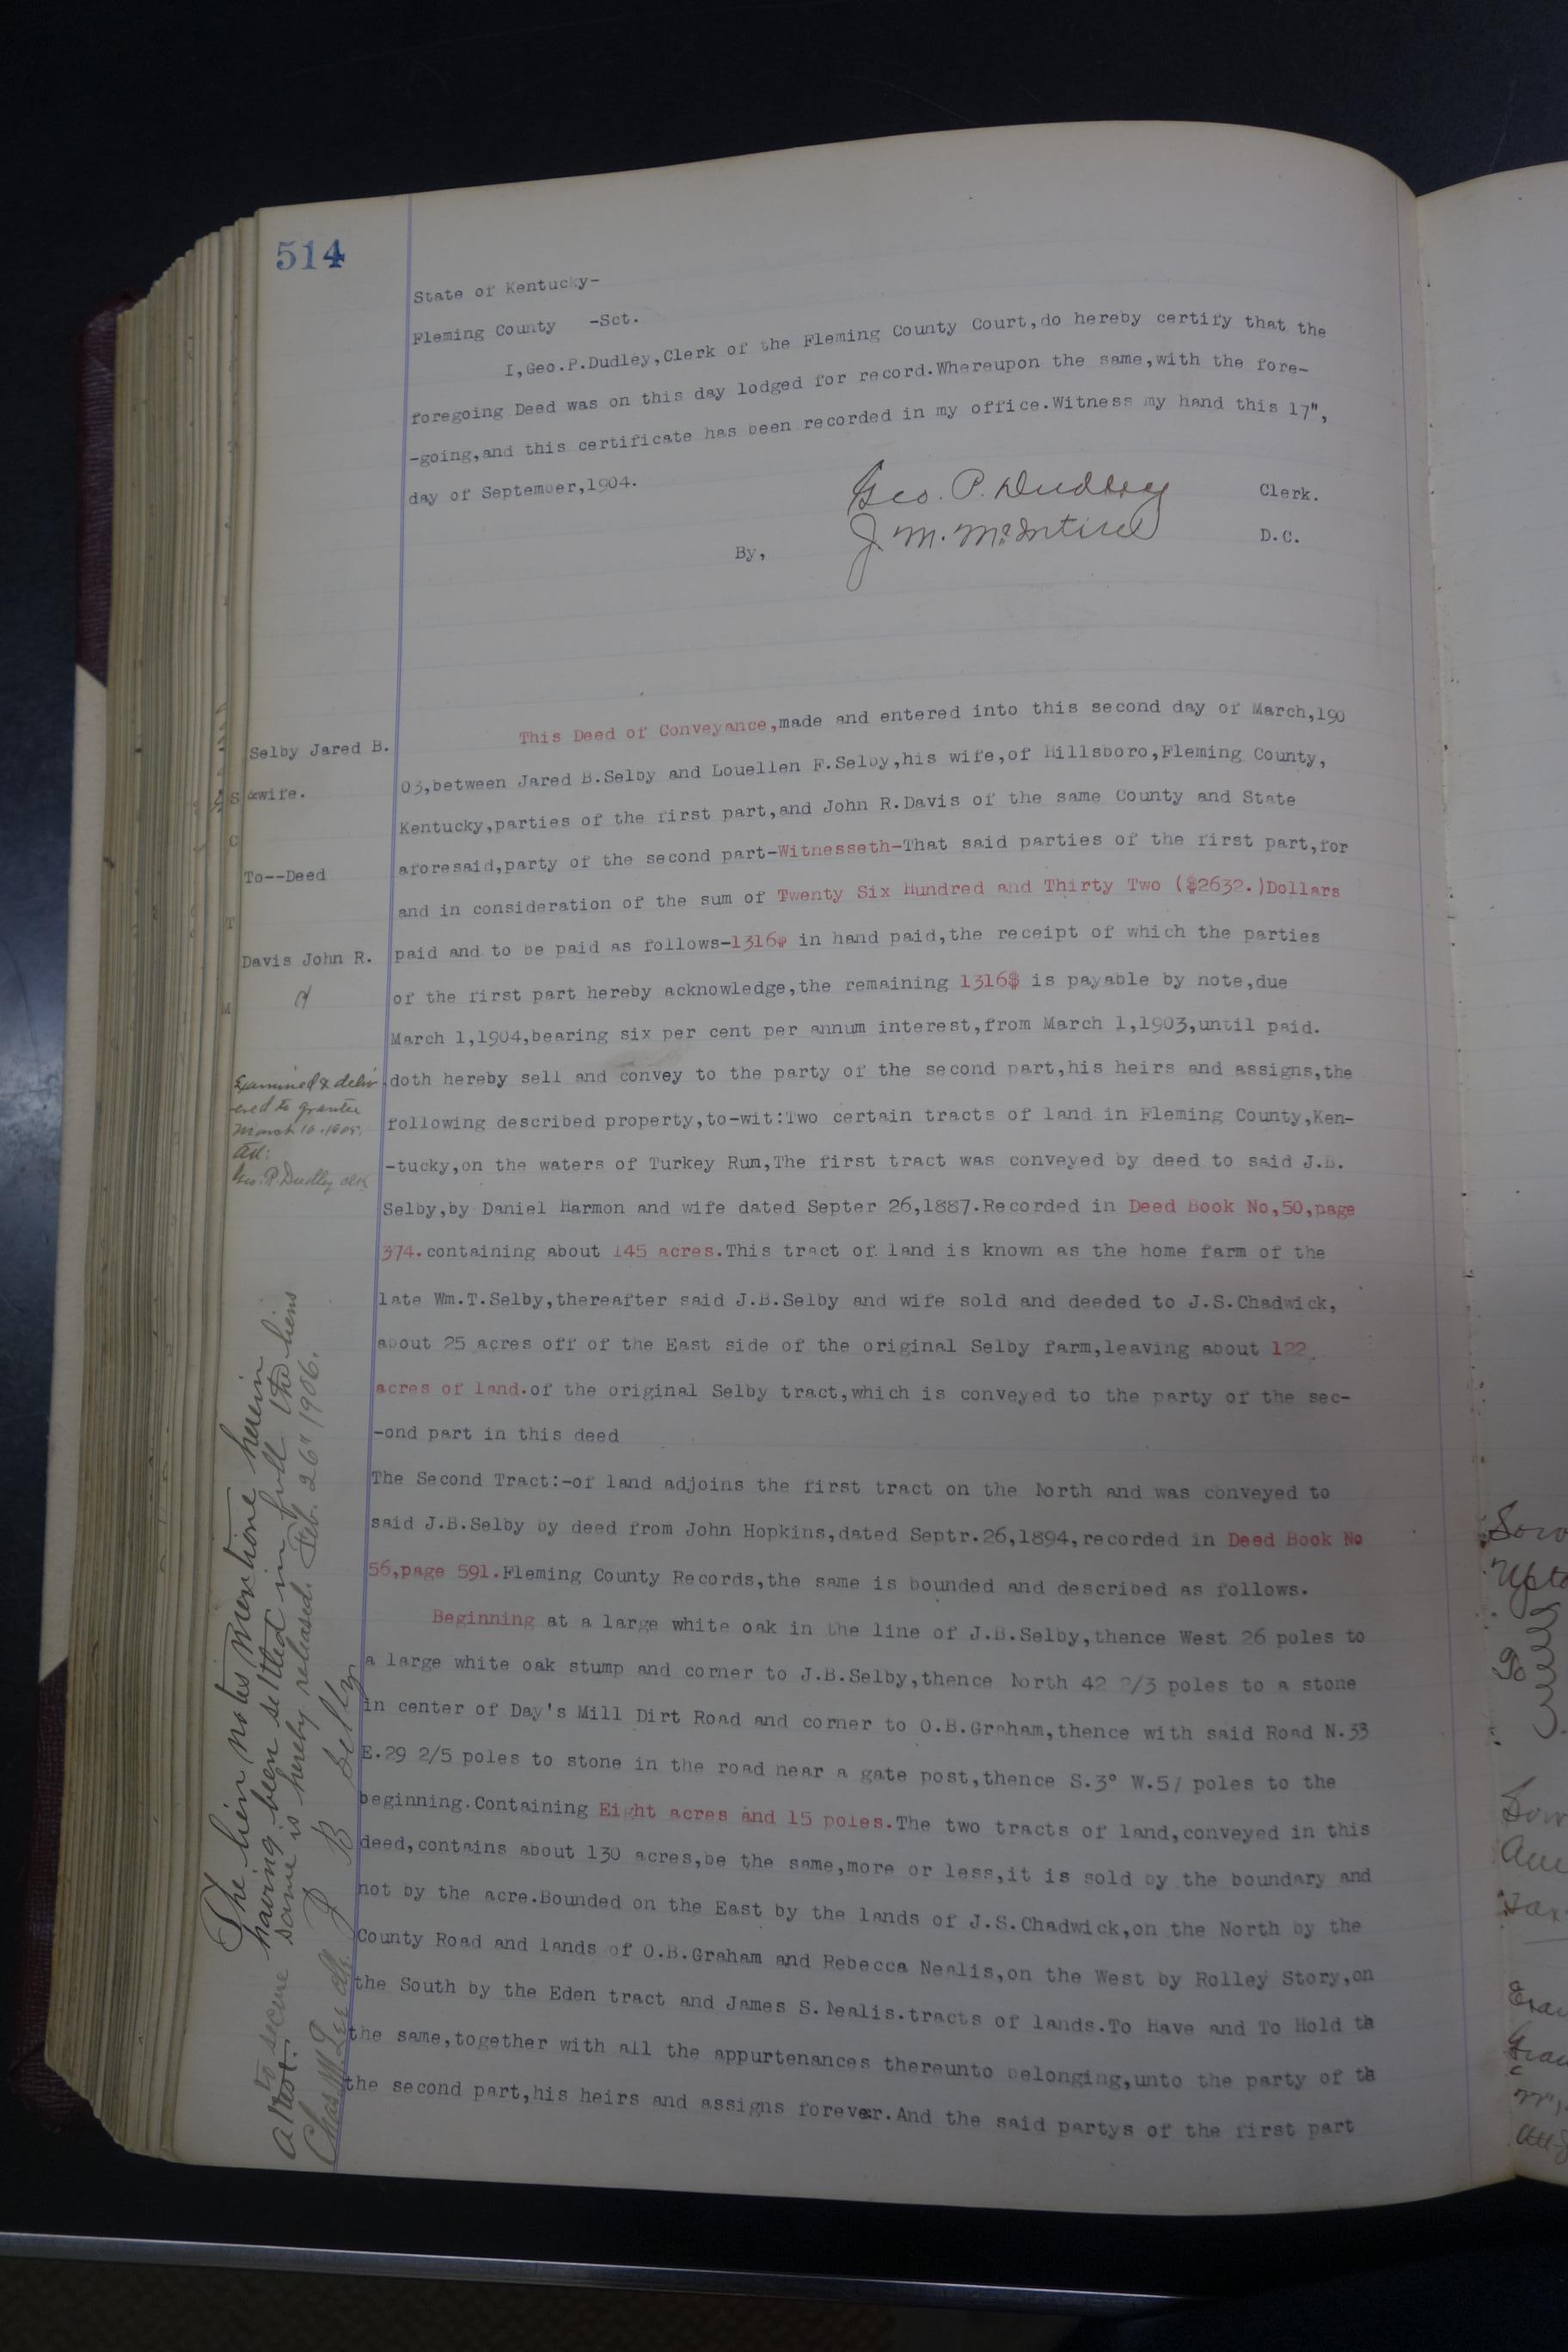 514
State of Kentucky-
Fleming County -Sct.
I,Geo.P.Dudley,Clerk of the Fleming County Court,do hereby certify that the
foregoing Deed was on this day lodged for record.Whereupon the same,with the fore-
-going,and this certificate has been recorded in my office.Witness my hand this 17",
day of September,1904.
Geo. P. Dudley Clerk.
By, J. M. McIntire D.C.
Selby Jared B.
&wife.
To--Deed
Davis John R.
Examined & deliv
-ered to grantee
March 10.1905.
Att:
Geo. P. Dudley Clk
This Deed of Conveyance,made and entered into this second day of March,190
03,between Jared B.Selby and Louellen F.Selby,his wife,of Hillsboro,Fleming County,
Kentucky,parties of the first part,and John R.Davis of the same County and State
aforesaid,party of the second part-Witnesseth-That said parties of the first part,for
and in consideration of the sum of Twenty Six Hundred and Thirty Two ($2632.)Dollars
paid and to be paid as follows-1316$ in hand paid,the receipt of which the parties
of the first part hereby acknowledge,the remaining 1316$ is payable by note,due
March 1,1904,bearing six per cent per annum interest,from March 1,1903,until paid.
doth hereby sell and convey to the party of the second part,his heirs and assigns,the
following described property,to-wit:Two certain tracts of land in Fleming County,Ken-
-tucky,on the waters of Turkey Run,The first tract was conveyed by deed to said J.B.
Selby,by Daniel Harmon and wife dated Septer 26,1887.Recorded in Deed Book No,50,page
374.containing about 145 acres.This tract of land is known as the home farm of the
late Wm.T.Selby,thereafter said J.B.Selby and wife sold and deeded to J.S.Chadwick,
about 25 acres off of the East side of the original Selby farm,leaving about 122
acres of land.of the original Selby tract,which is conveyed to the party of the sec-
-ond part in this deed
The Second Tract:-of land adjoins the first tract on the North and was conveyed to
said J.B.Selby by deed from John Hopkins,dated Septr.26,1894,recorded in Deed Book No
56,page 591.Fleming County Records,the same is bounded and described as follows.
Beginning at a large white oak in the line of J.B.Selby,thence West 26 poles to
a large white oak stump and corner to J.B.Selby,thence North 42 2/3 poles to a stone
in center of Day's Mill Dirt Road and corner to O.B.Graham,thence with said Road N.33
E.29 2/5 poles to stone in the road near a gate post,thence S.3° W.57 poles to the
beginning.Containing Eight acres and 15 poles.The two tracts of land,conveyed in this
deed,contains about 130 acres,be the same,more or less,it is sold by the boundary and
not by the acre.Bounded on the East by the lands of J.S.Chadwick,on the North by the
County Road and lands of O.B.Graham and Rebecca Nealis,on the West by Rolley Story,on
the South by the Eden tract and James S.Nealis.tracts of lands.To Have and To Hold th
the same,together with all the appurtenances thereunto belonging,unto the party of th
the second part,his heirs and assigns forever.And the said partys of the first part
The lien notes mentione herein
having been settled in full the liens
to secure same is hereby released. Feb. 26" 1906.
J B Selby
Attest: